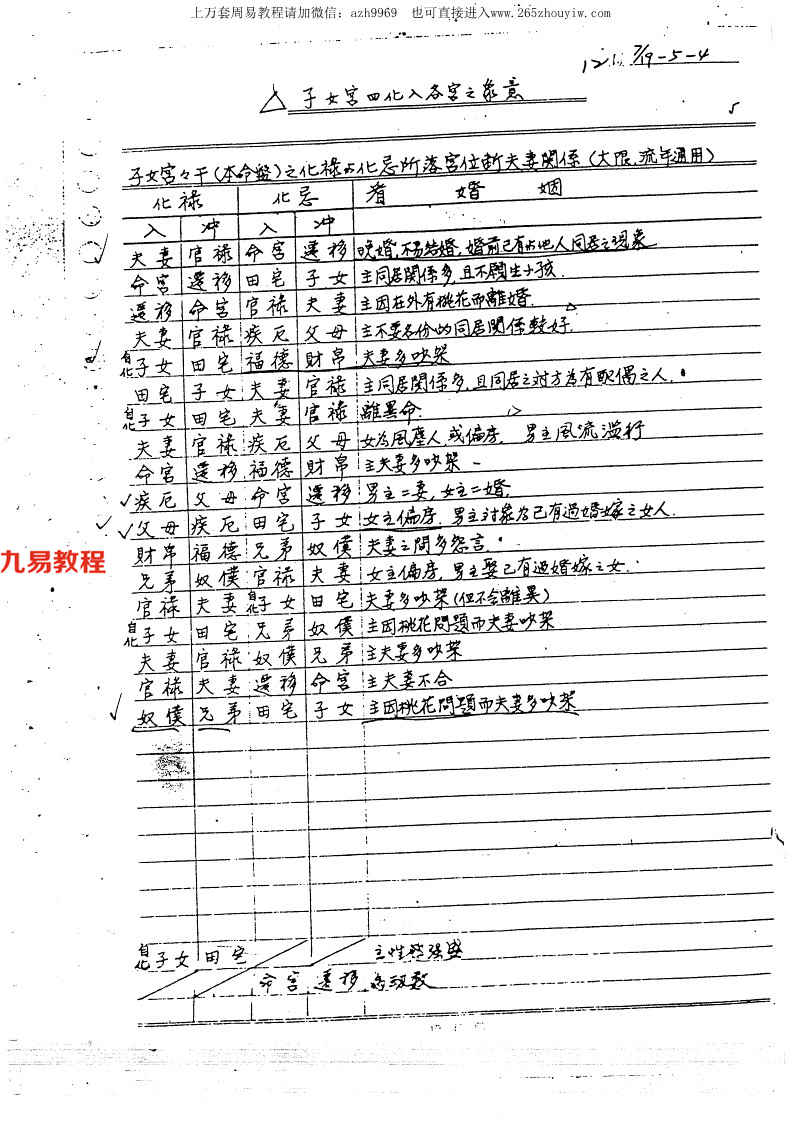 上万套周易教程请加微信：azh9969 也可直接进入www.265zhouyiw.com
7/19-5-4
△ 子女宮四化入各宮之象意
5
子女宮々干(本命盤)之化祿与化忌所落宮位断夫妻関係(大限.流年通用)
化祿 化忌 看婚姻
入 冲 入 冲
夫妻 官祿 命宮 遷移 晚婚,不易結婚,婚前已有与他人同居之現象
命宮 遷移 田宅 子女 主同居関係多,且不願生小孩.
遷移 命宮 官祿 夫妻 主因在外有桃花而離婚.
夫妻 官祿 疾厄 父母 主不要名份的同居関係較好.
自化子女 田宅 福德 財帛 夫妻多吵架
田宅 子女 夫妻 官祿 主同居関係多,且同居之対方為有配偶之人.
自化子女 田宅 夫妻 官祿 離異命.
夫妻 官祿 疾厄 父母 女為風塵人,或偏房, 男主風流溢行
命宮 遷移 福德 財帛 主夫妻多吵架
疾厄 父母 命宮 遷移 男主二妻,女主二婚.
父母 疾厄 田宅 子女 女主偏房,男主対象為已有過婚嫁之女人.
財帛 福德 兄弟 奴僕 夫妻之間多怨言.
九易教程
兄弟 奴僕 官祿 夫妻 女主偏房,男主娶已有過婚嫁之女.
官祿 夫妻 自化子女 田宅 夫妻多吵架(但不会離異)
自化子女 田宅 兄弟 奴僕 主因桃花問題而夫妻吵架
夫妻 官祿 奴僕 兄弟 主夫妻多吵架
官祿 夫妻 遷移 命宮 主夫妻不合
奴僕 兄弟 田宅 子女 主因桃花問題而夫妻多吵架
自化子女 田宅 主性慾強盛
命宮 遷移